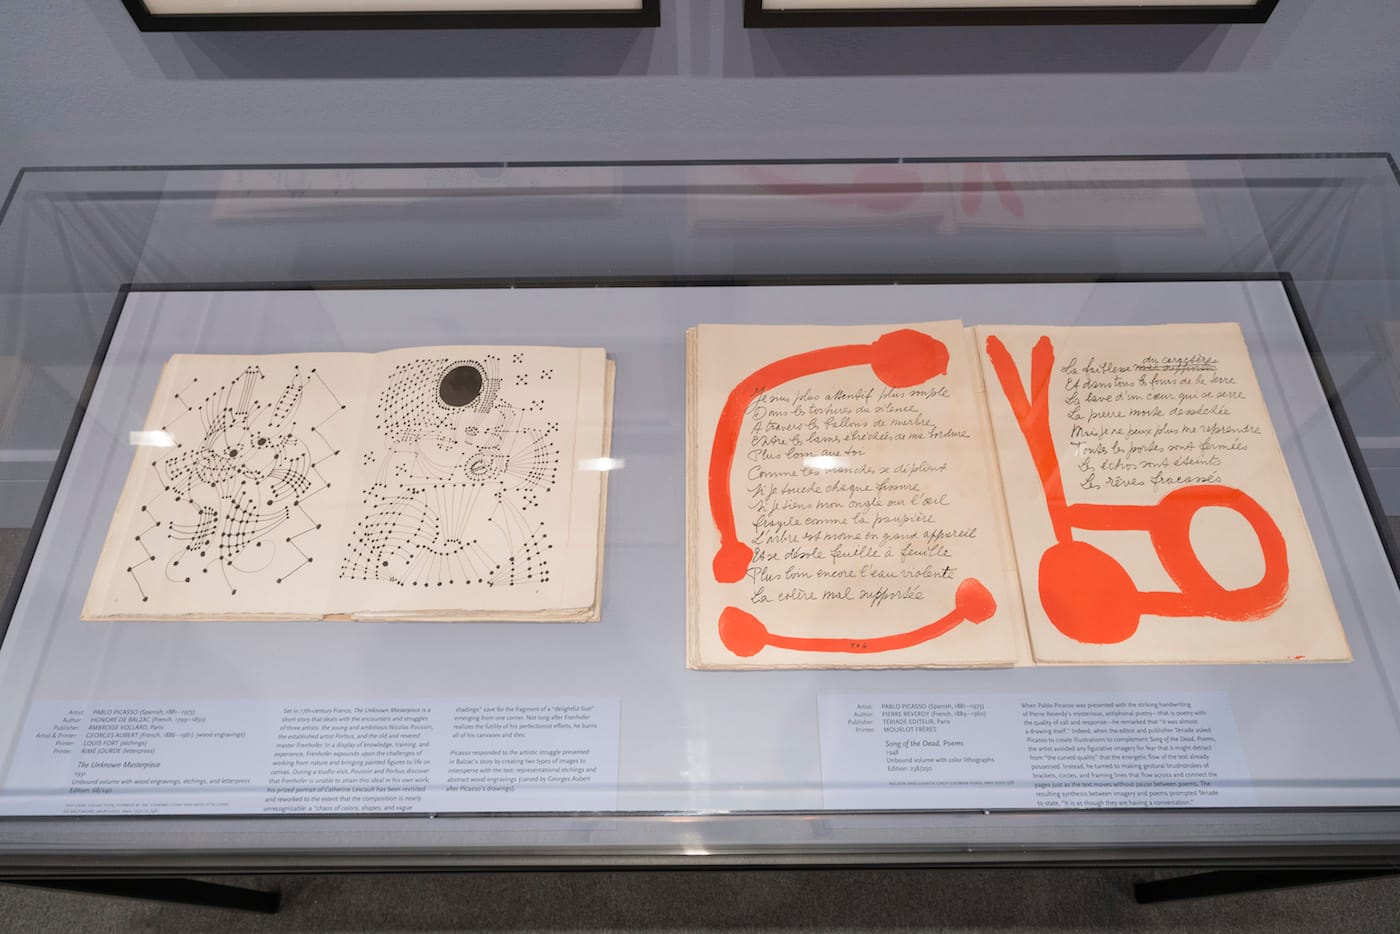 Je suis plus attentif plus souple
Dans les tortures du silence
A travers les ballons de marbre
Entre les lames ébréchées de ma torture
Plus loin que toi
Comme les branches se déplient
Si je touche chaque fissure
Si je tiens mon ongle sur l'œil
fragile comme la paupière
L'arbre est morne en grand appareil
Et se désole feuille à feuille
Plus loin encore l'eau violente
La colère mal supportée
106
du caractère
La faiblesse mal supportée
Et dans tous les fours de la terre
La lave d'un cœur qui se serre
La pierre morte desséchée
Mais je ne peux plus me reprendre
Toutes les portes sont fermées
Les échos sont éteints
Les rêves fracassés
Artist: PABLO PICASSO (Spanish, 1881–1973)
Author: HONORÉ DE BALZAC (French, 1799–1850)
Publisher: AMBROISE VOLLARD, Paris
Artist & Printer: GEORGES AUBERT (French, 1886–1961) (wood engravings)
Printer: LOUIS FORT (etchings)
Printer: AIMÉ JOURDE (letterpress)
The Unknown Masterpiece
1931
Unbound volume with wood engravings, etchings, and letterpress
Edition: 68/240
THE CONE COLLECTION, FORMED BY DR. CLARIBEL CONE AND MISS ETTA CONE
OF BALTIMORE, MARYLAND, BMA
Set in 17th-century France, The Unknown Masterpiece is a
short story that deals with the encounters and struggles
of three artists: the young and ambitious Nicolas Poussin,
the established artist Porbus, and the old and revered
master Frenhofer. In a display of knowledge, training, and
experience, Frenhofer expounds upon the challenges of
working from nature and bringing painted figures to life on
canvas. During a studio visit, Poussin and Porbus discover
that Frenhofer is unable to attain this ideal in his own work;
his prized portrait of Catherine Lescault has been revisited
and reworked to the extent that the composition is nearly
unrecognizable: a "chaos of colors, shapes, and vague
shadings" save for the fragment of a "delightful foot"
emerging from one corner. Not long after Frenhofer
realizes the futility of his perfectionist efforts, he burns
all of his canvases and dies.
Picasso responded to the artistic struggle presented
in Balzac's story by creating two types of images to
intersperse with the text: representational etchings and
abstract wood engravings (carved by Georges Aubert
after Picasso's drawings).
Artist: PABLO PICASSO (Spanish, 1881–1973)
Author: PIERRE REVERDY (French, 1889–1960)
Publisher: TÉRIADE EDITEUR, Paris
Printer: MOURLOT FRÈRES
Song of the Dead, Poems
1948
Unbound volume with color lithographs
Edition: 238/250
When Pablo Picasso was presented with the striking handwriting
of Pierre Reverdy's mysterious, antiphonal poetry—that is poetry with
the quality of call and response—he remarked that "it was almost
a drawing itself." Indeed, when the editor and publisher Tériade asked
Picasso to create illustrations to complement Song of the Dead, Poems,
the artist avoided any figurative imagery for fear that it might detract
from "the curved quality" that the energetic flow of the text already
possessed. Instead, he turned to making gestural brushstrokes of
brackets, circles, and framing lines that flow across and connect the
pages just as the text moves without pause between poems. The
resulting synthesis between imagery and poems prompted Tériade
to state, "It is as though they are having a conversation."